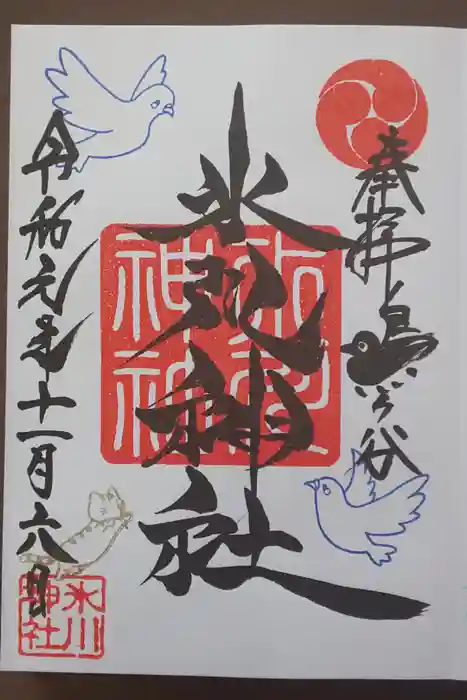 奉拝 鳩ヶ谷
氷川神社
令和元年十一月六日
氷川
神社
氷川
神社